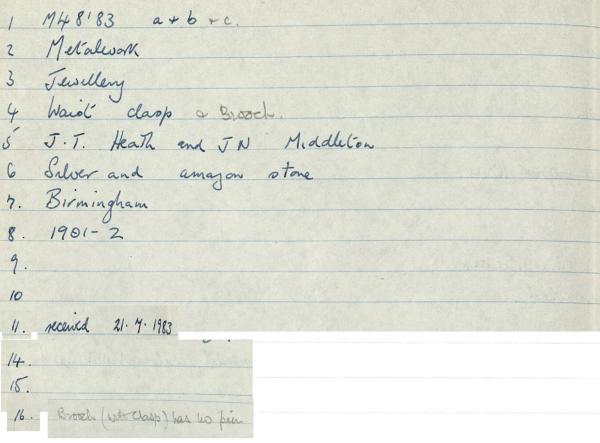 1 M48'83 a + b + c.
2 Metalwork
3 Jewellery
4 Waist clasp & Brooch.
5 J.T. Heath and JN Middleton
6 Silver and amazon stone
7. Birmingham
8. 1901-2
9.
10
11. received 21.7.1983
14.
15.
16. Brooch (with Clasp) has no pin